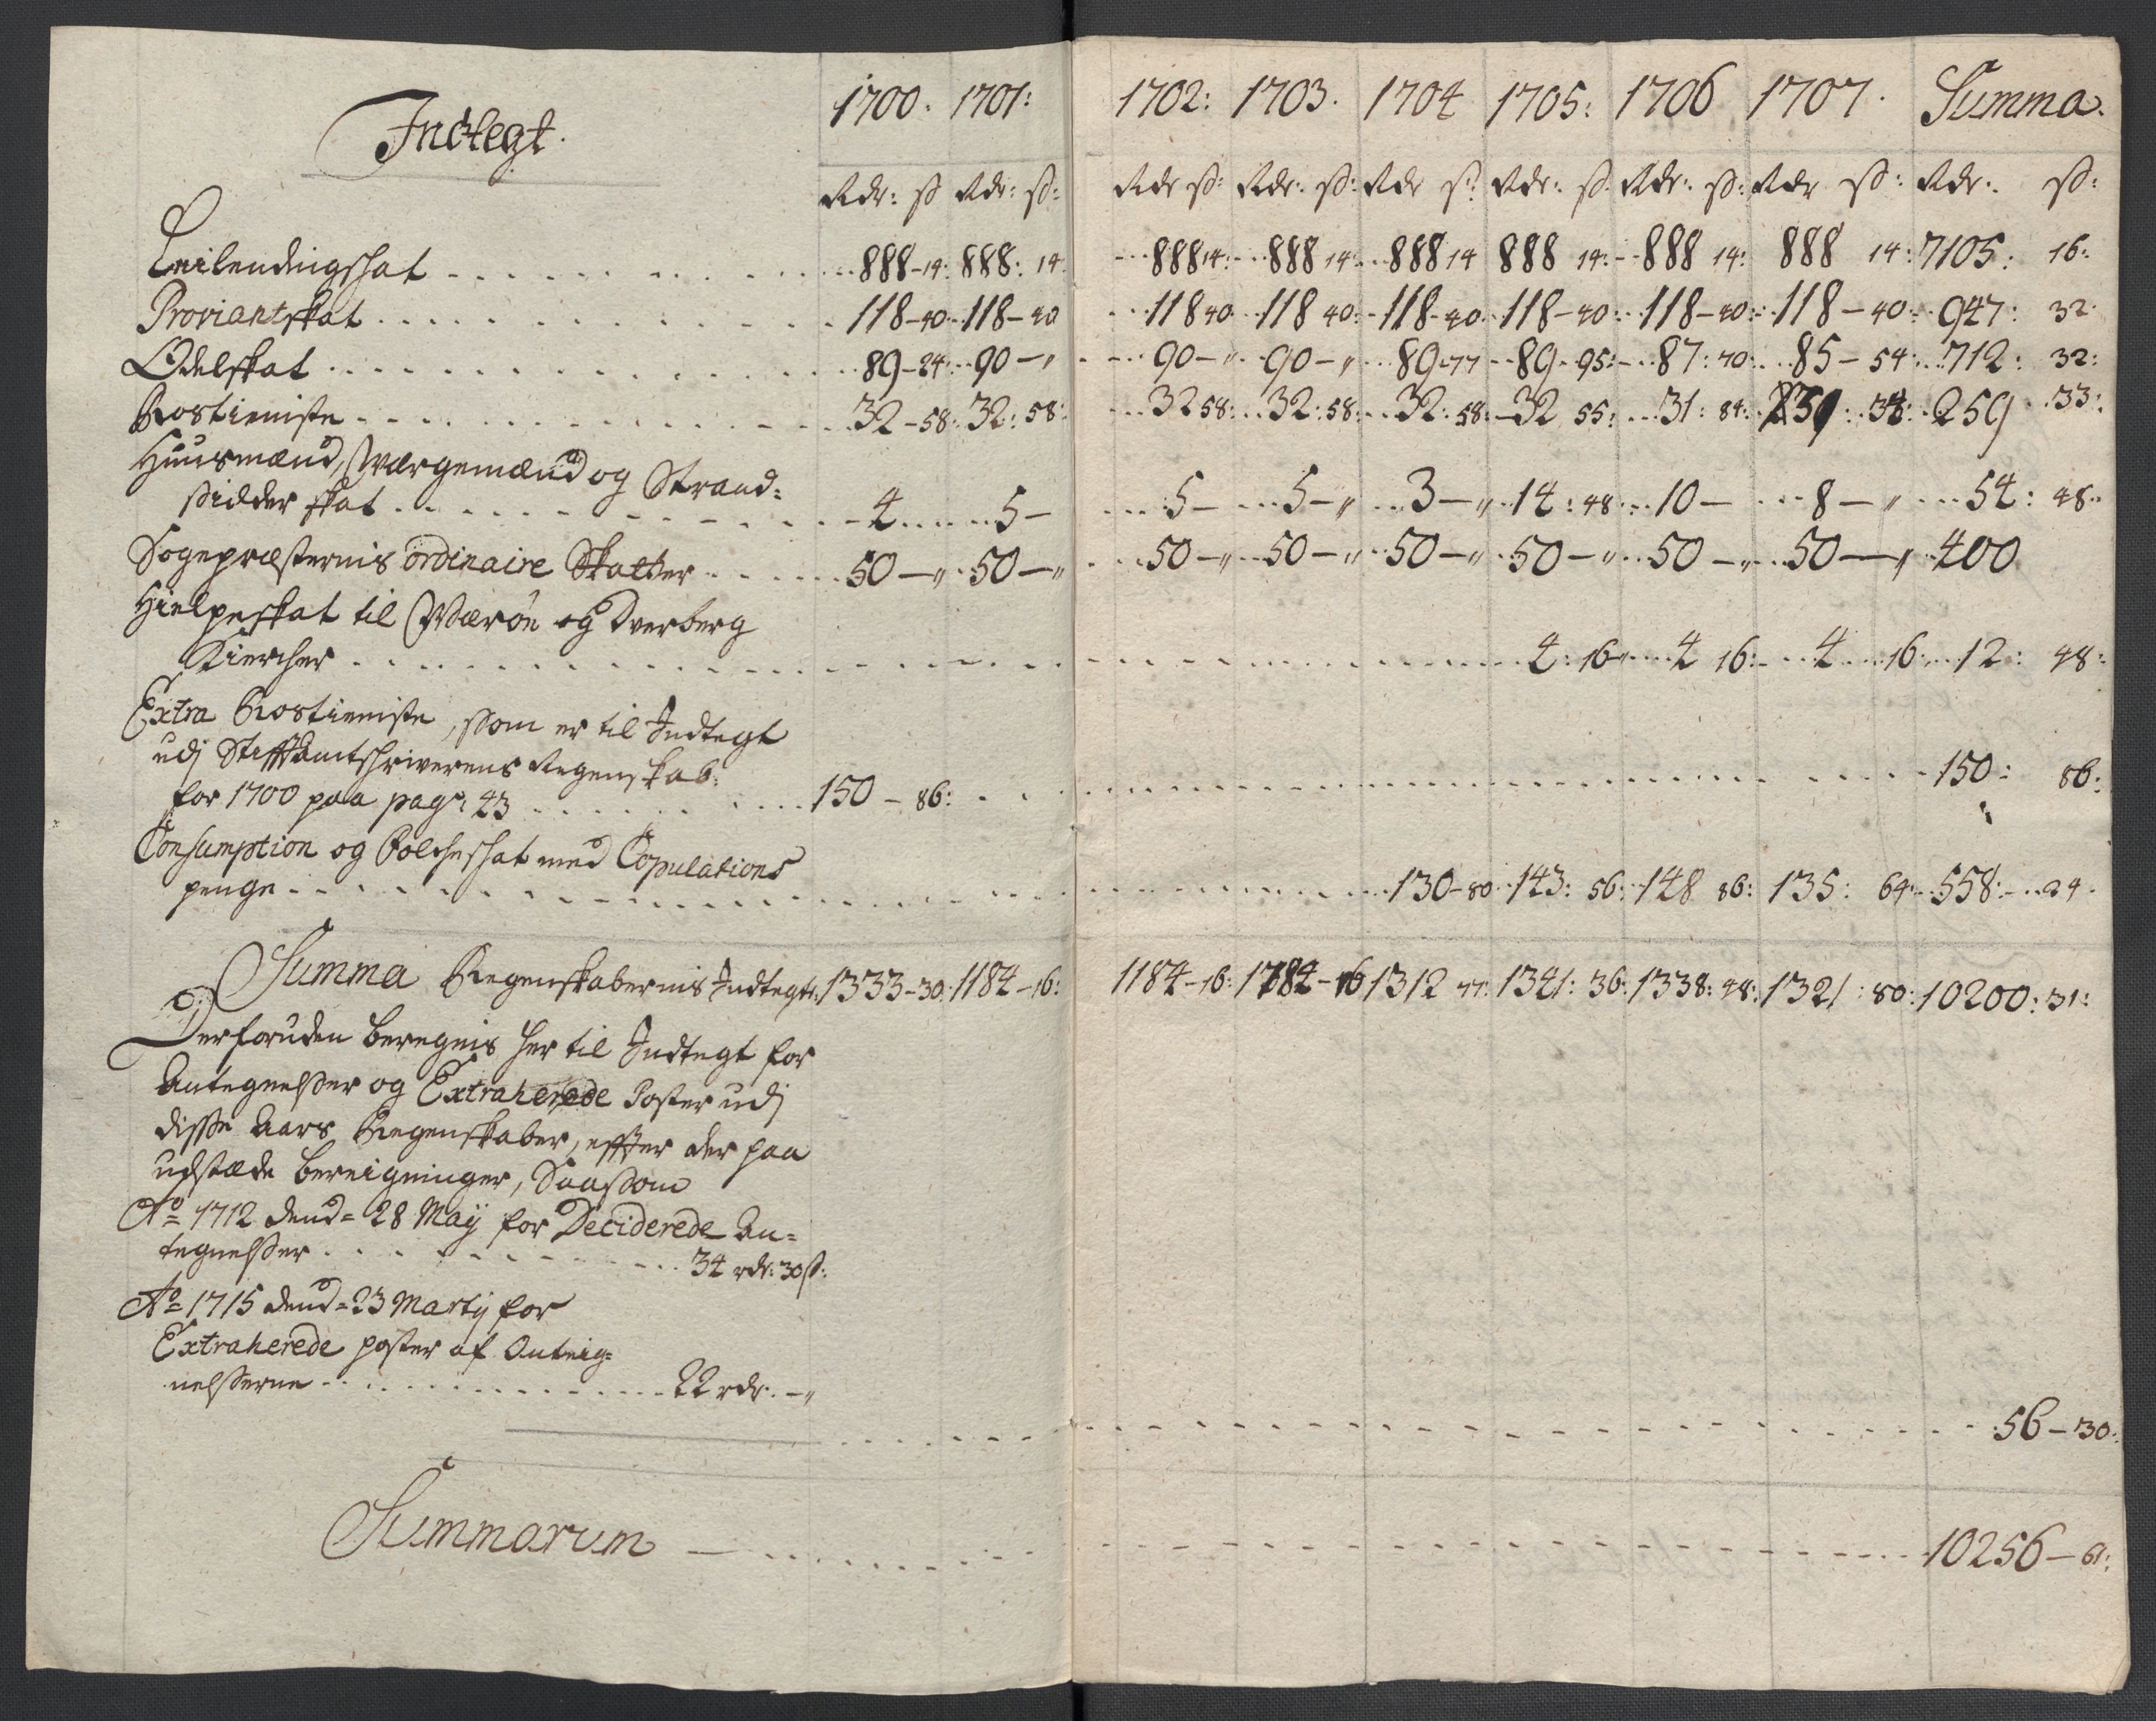 Indtegt. 1700. 1701: 1702: 1703. 1704 1705: 1706 1707. Summa.
Rdr: ß Rdr: ß: Rdr ß: Rdr: ß: Rdr ß: Rdr: ß. Rdr: ß: Rdr ß: Rdr: ß:
Leilendingsskat 888-14: 888: 14: 888 14: 888 14: 888 14 888 14: 888 14: 888 14: 7105: 16:
Proviantskat 118-40 118-40 118 40 118 40: 118-40 118-40: 118-40: 118-40: 947: 32
Odelskat 89-24: 90-" 90-" 90-" 89-77 89-95: 87:70: 85-54: 712: 32:
Rostieniste 32-58: 32: 58: 32 58: 32:58: 32:58: 32 55: 31: 84: 259 33:
Huusmænd, Wærgemænd og Strand=
sidder skat 4 5- 5- 5-" 3-" 14:48 10- 8-" 54: 48:
Sogepræsternis ordinaire Skatter 50-" 50-" 50-" 50-" 50-" 50-" 50-" 50-" 400
Hielpeskat til Werøe og Dverberg
Kiercher 4: 16 4 16: 4 16: 12: 48:
Extra Rostieniste, som er til Indtegt
udj Stifftamtskriverens Regenskab:
for 1700 paa pag: 43 150-86: 150: 86:
Consumption og Folcheskat med Copulations
penge 130-80 143: 56: 148 86: 135: 64: 558: 94.
Summa Regenskabernis Indtegt: 1333-30: 1184-16: 1184-16: 1184-16 1312 77: 1341: 36: 1338: 48: 1321: 80: 10200: 31:
Derforuden beregnis her til Indtegt for
Antegnelsser og Extraherede Poster udj
disse Aars Regenskaber, effter der paa
udstæde bereigninger, Saassom
Ao= 1712 dend= 28 Maij for Deciderede An=
tegnelsser 34 rdr: 30 ß:
Ao= 1715 dend= 23 Martij for
Extraherede poster af Anteig=
nelsserne 22 rdr: -"
56-30:
Summarum 10256-61: